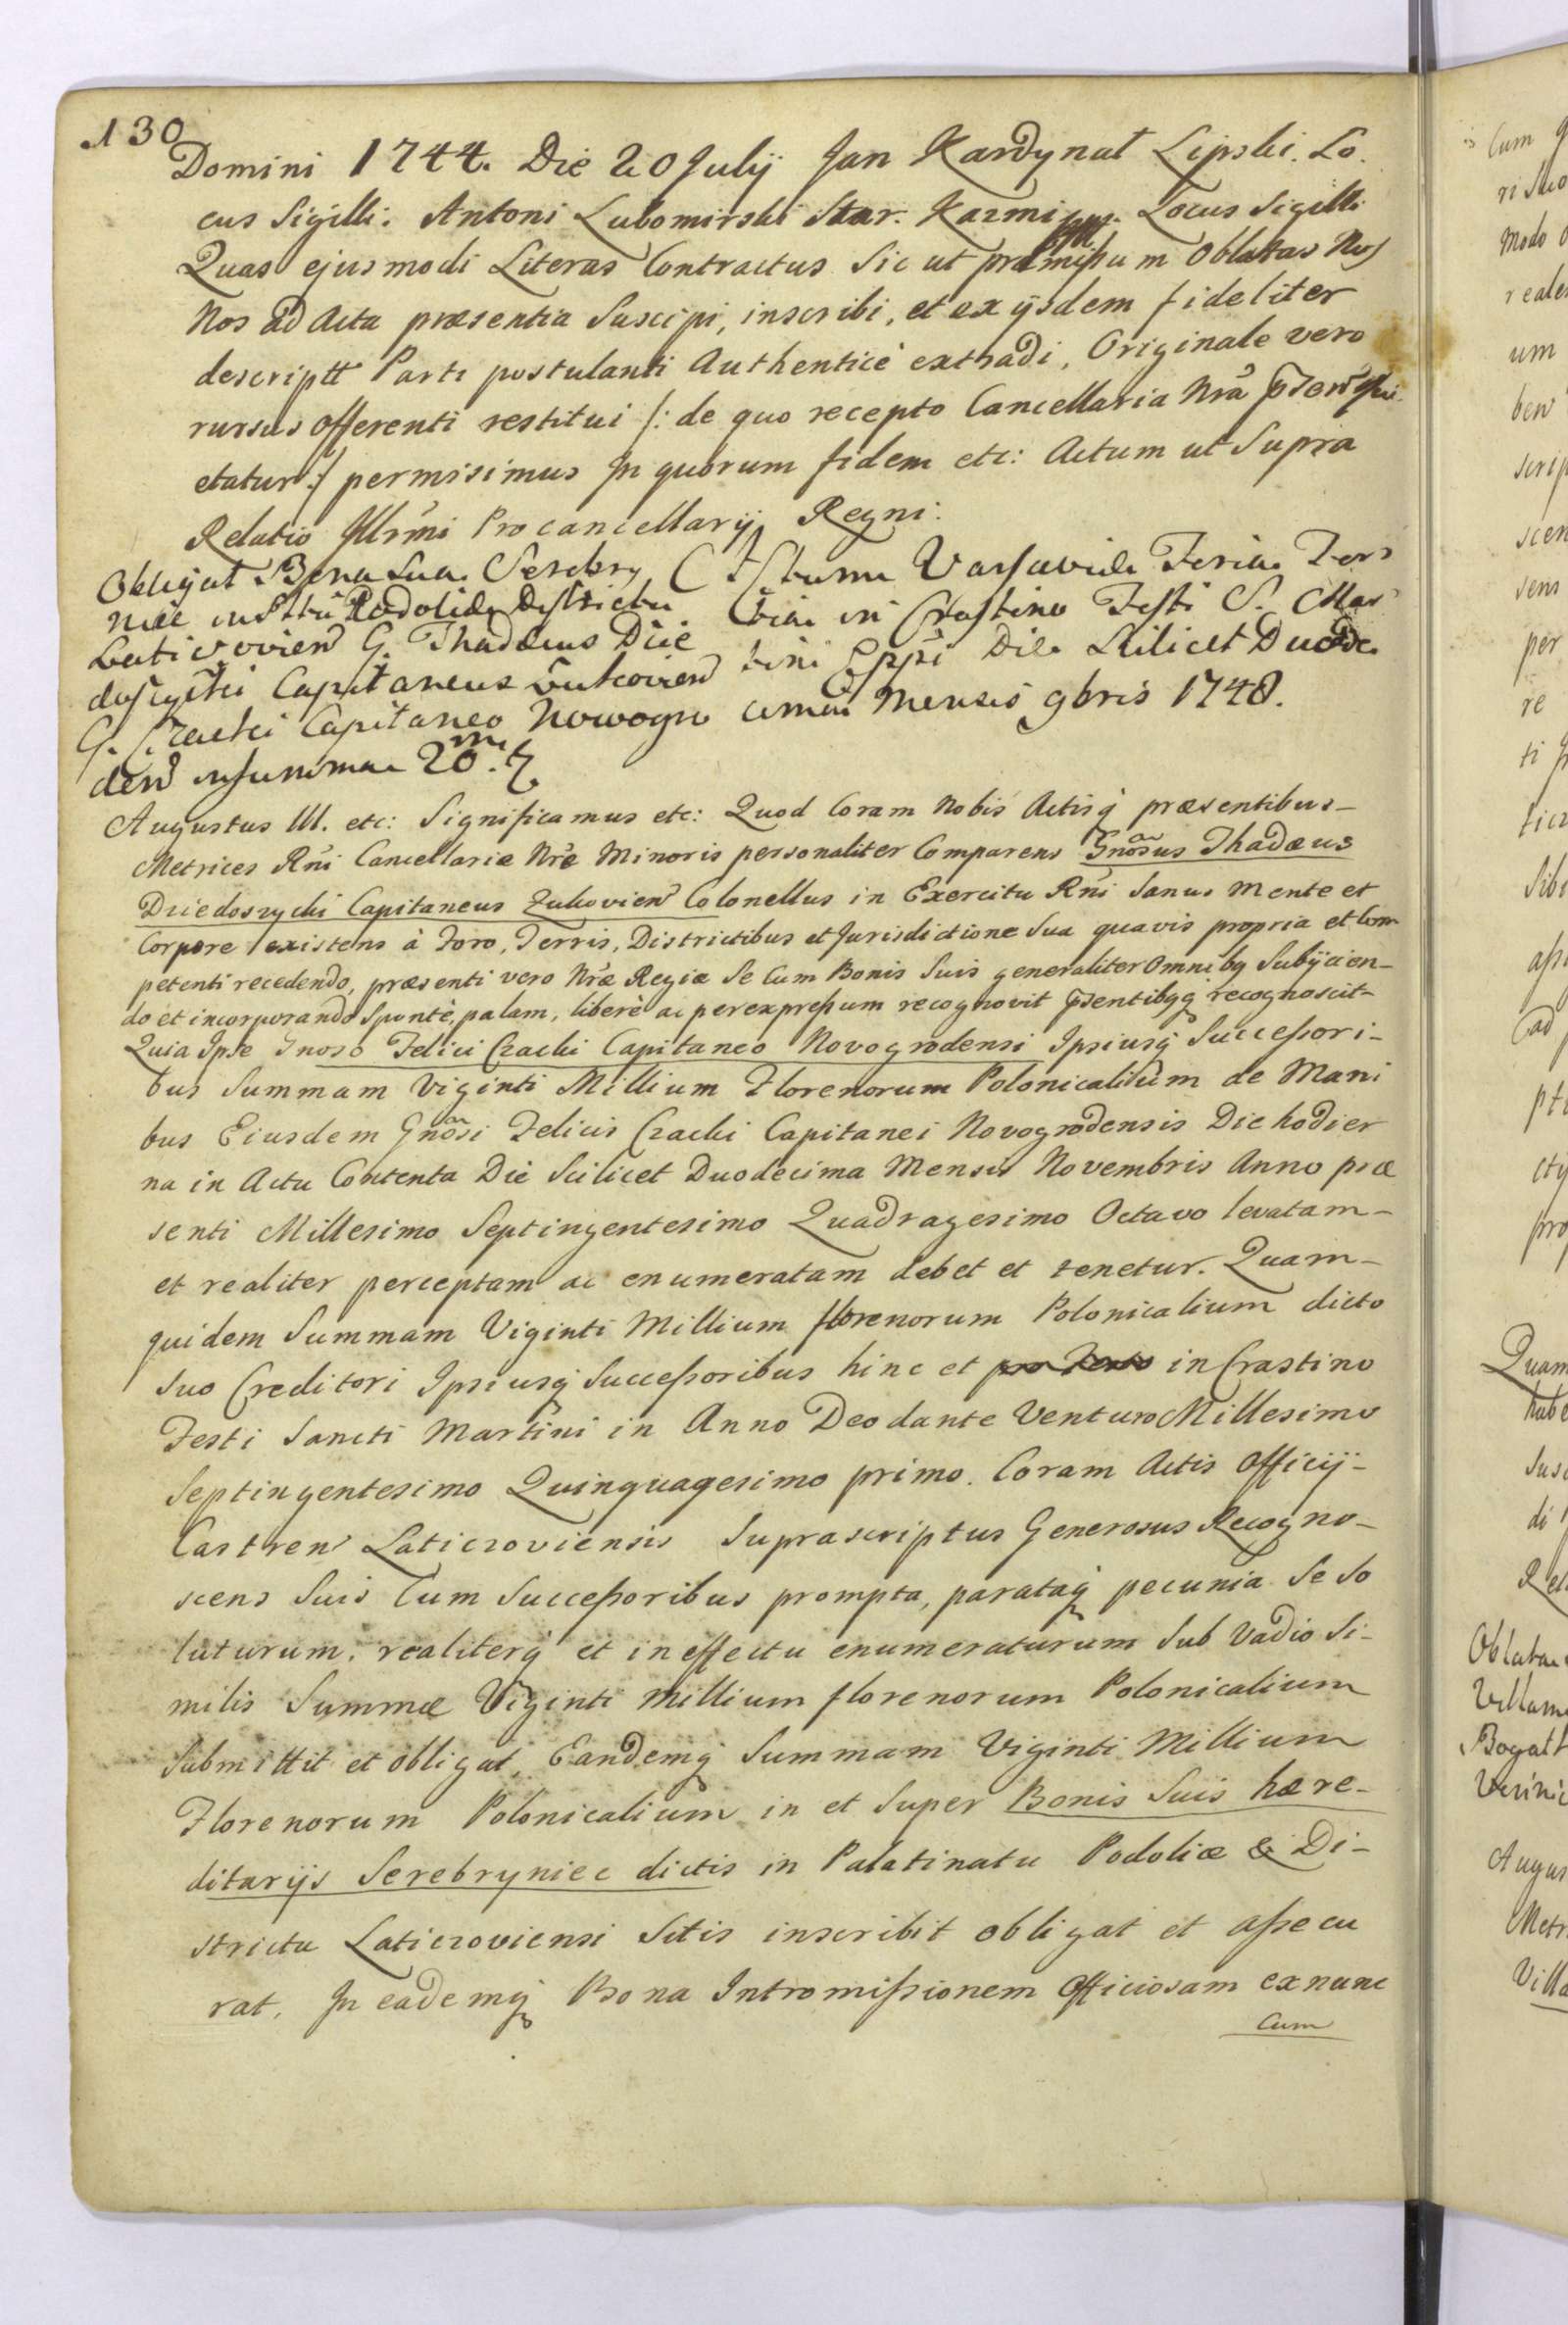 130
Domini 1744. Die 20 Julij Jan Kardynał Lipski. Lo
cus Sigilli. Antoni Lubomirski Star. Kazmi Locus Sigilli
Quas ejusmodi Literas Contractus Sic ut præmissum Oblatas Nos
Nos ad Acta præsentia Suscipi, inscribi, et ex ijsdem fideliter
descriptt Parti postulanti Authenticè extradi, Originale vero
rursus Offerenti restitui /: de quo recepto Cancellaria Nra
etatur :/ permisimus In quorum fidem etc: Actum ut Supra
Relatio Illrmi Procancellarij Regni.
Obligat Bona Sua Serebry
niec in Pttu Podoliæ Districtu
Laticovien G. Thadæus Dzie
doszycki Capitaneus Żukovien
G. Czacki Capitaneo Nowogro
den in summa 20.m
Actum Varsaviæ Feria Ter
tia in Crastino Festi S. Mar
tini Eppi Die Scilicet Duode
cima Mensis 9bris 1748.
Augustus III. etc: Significamus etc: Quod Coram Nobis Actisq præsentibus
Metrices Rni Cancellariæ Nræ Minoris personaliter Comparens Gnosus Thadæus
Dziedoszycki Capitaneus Zukovien Colonellus in Exercitu Rni Sanus mente et
Corpore existens à Foro, Terris, Districtibus et Jurisdictione Sua quavis propria et Com
petenti recedendo, præsenti vero Nræ Regiæ Se Cum Bonis Suis generaliter Omnibq Subijcien-
do et incorporando Spontè, palam, liberè ac per expressum recognovit psentibqq recognoscit
Quia Ipse Gnoso Felici Czacki Capitaneo Novogrodensi Ipsiusq Successori-
bus Summam Viginti Millium Florenorum Polonicalium de Mani
bus Eiusdem Gnosi Felicis Czacki Capitanei Novogrodensis Die hodier
na in Actu Contenta Die Scilicet Duodecima Mensis Novembris Anno præ
senti Millesimo Septingentesimo Quadragesimo Octavo levatam-
et realiter perceptam ac enumeratam debet et tenetur. Quam-
quidem Summam Viginti Millium florenorum Polonicalium dicto
Suo Creditori Ipsiusq Successoribus hinc et in Crastino
Festi Sancti Martini in Anno Deo dante Venturo Millesimo
Septingentesimo Quinquagesimo primo. Coram Actis Officij-
Castren Laticzoviensis Suprascriptus Generosus Recogno-
scens Suis Cum Successoribus prompta, parataq pecunia Se So
luturum, realiterq et in effectu enumeraturum Sub Vadio Si-
milis Summæ Viginti Millium florenorum Polonicalium
Submittit et obligat, Eandemq Summam Viginti Millium
Florenorum Polonicalium in et Super Bonis Suis hære-
ditarijs Serebryniec dictis in Palatinatu Podoliæ & Di-
strictu Laticzoviensi Sitis inscribit obligat et assecu
rat. In eademq Bona Intromissionem Officiosam ex nunc
Cum